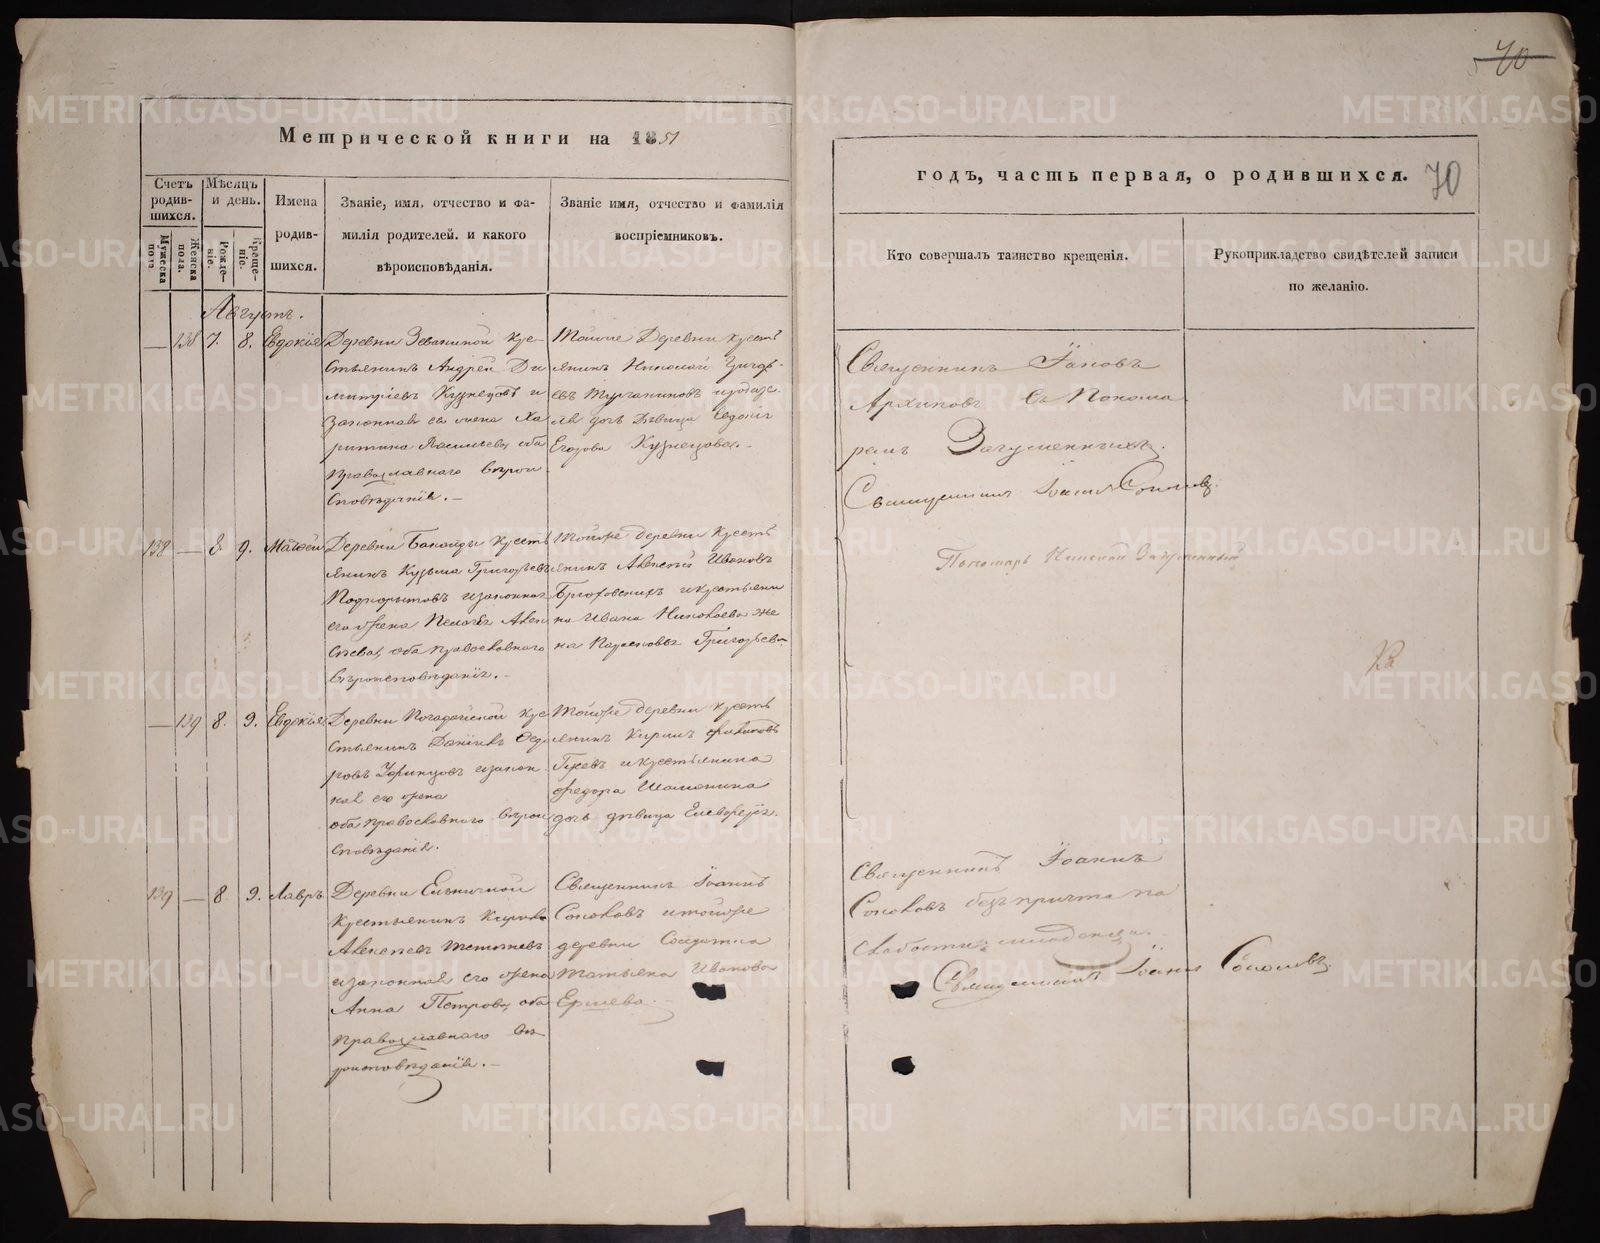 70
Метрической книги на 1851
годъ, часть первая, о родившихся.
70
Счетъ родив-шихся.
Мужеска пола.
Женска пола.
Мѣсяцъ и день.
Рожде-нiе.
Креще-нiе.
Имена
родив-
шихся.
Званiе, имя, отчество и фа-
милiя родителей. и какого
вѣроисповѣданiя.
Званiе имя, отчество и фамилiя
воспрiемниковъ.
Кто совершалъ таинство крещенiя.
Рукоприкладство свидѣтелей записи
по желанiю.
Августъ.
138 7. 8. Евдокiя
Деревни кре-
стьянинъ Андрей Ди
митрiевъ Кузнецовъ и
законная его жена Ха
ритина Васильева, оба
православнаго вѣрои
сповѣданiя.
Тойже Деревни крестъ
янинъ Николай Григор-
евъ и
дочь Дѣвица Евдокiя
Егорова Кузнецова.
Священникъ
Архиповъ съ Понома
ремъ Загуменныхъ.
Священникъ Iоаннъ Соколовъ.
Пономарь Загуменный
138 8. 9. Матѳей
Деревни кресть
янинъ Кузьма Григорьевъ
и законная
его жена Пелагея Алек
сѣева, оба православнаго
вѣроисповѣданiя.
Тойже деревни кресть
янинъ Алексѣй Ивановъ
и крестьяни
на Ивана Николаева же
на Григорьева.
139 8. 9. Евдокiя
Деревни кре
стьянинъ Данiилъ Ѳедо
ровъ и закон
ная его жена
оба православнаго вѣрои
сповѣданiя.
Тойже деревни кресть
янинъ Кирилъ
и крестьянина
Федора
дочь дѣвица
139 8 9. Лавръ
Деревни
Крестьянинъ Кирило
Алексѣевъ
и законная его жена
Анна Петрова, оба
православнаго вѣ
роисповѣданiя.
Священникъ Iоаннъ
Соколовъ и тойже
деревни Солдатка
Татьяна Иванова
Ершева.
Священникъ Iоаннъ
Соколовъ безъ причта по
слабости младенца.
Священникъ Iоаннъ Соколовъ
METRIKI.GASO-URAL.RU